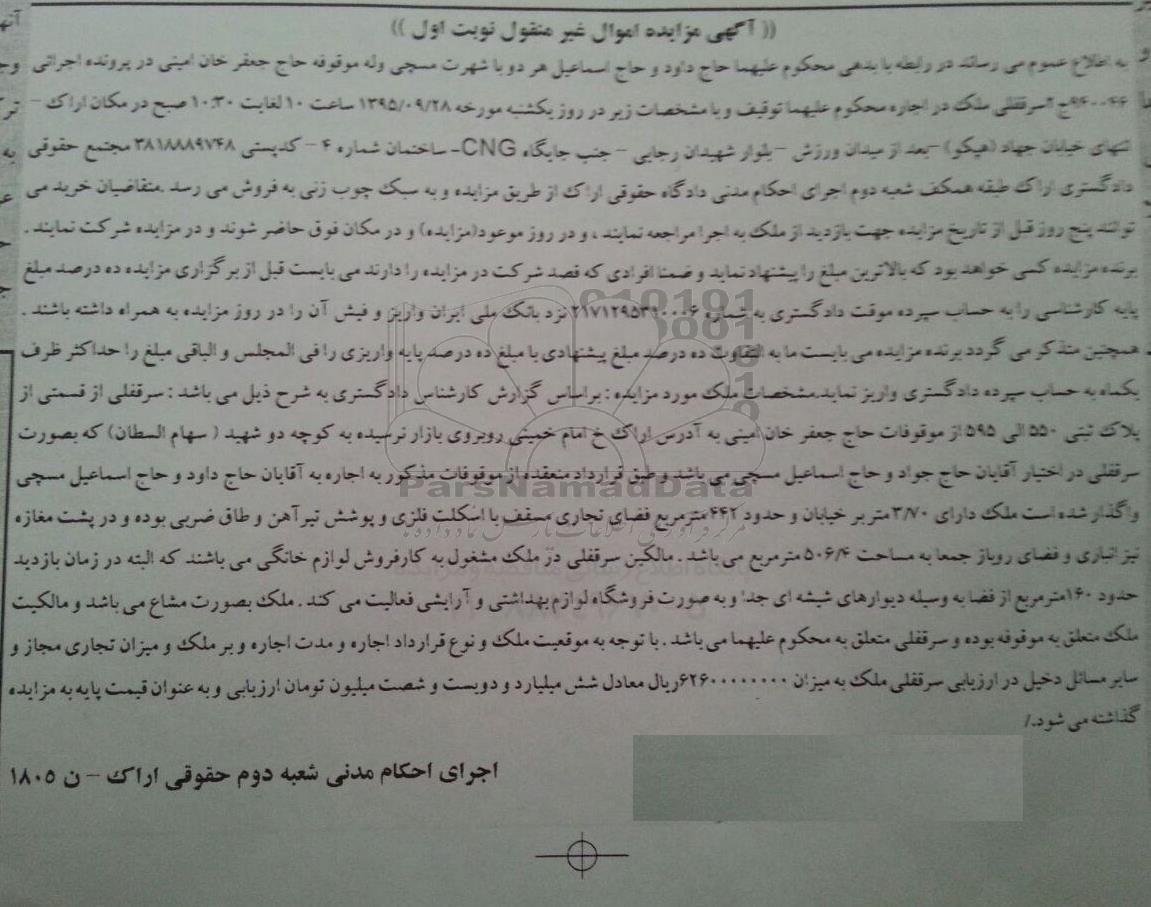 (( آگهی مزایده اموال غیر منقول نوبت اول ))
به اطلاع عموم می رساند در رابطه با بدهی محکوم علیهما حاج داود و حاج اسماعیل هر دو با شهرت مسچی وله موقوفه حاج جعفر خان امینی در پرونده اجرائی
سرقفلی ملک در اجاره محکوم علیهما توقیف و با مشخصات زیر در روز یکشنبه مورخه ۱۳۹۵/۰۹/۲۸ ساعت ۱۰ لغایت ۱۰:۳۰ صبح در مکان اراک –
انتهای خیابان جهاد (هپکو) –بعد از میدان ورزش –بلوار شهیدان رجایی – جنب جایگاه CNG– ساختمان شماره ۴ – کدپستی ۳۸۱۸۸۸۹۷۴۸ مجتمع حقوقی
دادگستری اراک طبقه همکف شعبه دوم اجرای احکام مدنی دادگاه حقوقی اراک از طریق مزایده و به سبک چوب زنی به فروش می رسد .متقاضیان خرید می
توانند پنج روز قبل از تاریخ مزایده جهت بازدید از ملک به اجرا مراجعه نمایند ، و در روز موعود(مزایده) و در مکان فوق حاضر شوند و در مزایده شرکت نمایند .
برنده مزایده کسی خواهد بود که بالاترین مبلغ را پیشنهاد نماید و ضمنا افرادی که قصد شرکت در مزایده را دارند می بایست قبل از برگزاری مزایده ده درصد مبلغ
پایه کارشناسی را به حساب سپرده موقت دادگستری به شماره ۲۱۷۱۲۹۵۳۹۰۰۰۶ نزد بانک ملی ایران واریز و فیش آن را در روز مزایده به همراه داشته باشند .
همچنین متذکر می گردد برنده مزایده می بایست ما به التفاوت ده درصد مبلغ پیشنهادی با مبلغ ده درصد پایه واریزی را فی المجلس و الباقی مبلغ را حداکثر ظرف
یکماه به حساب سپرده دادگستری واریز نماید.مشخصات ملک مورد مزایده : براساس گزارش کارشناس دادگستری به شرح ذیل می باشد : سرقفلی از قسمتی از
پلاک ثبتی ۵۵۰ الی ۵۹۵ از موقوفات حاج جعفر خان امینی به آدرس اراک خ امام خمینی روبروی بازار نرسیده به کوچه دو شهید ( سهام السطان) که بصورت
سرقفلی در اختیار آقایان حاج جواد و حاج اسماعیل مسچی می باشد و طبق قرارداد منعقده از موقوفات مذکور به اجاره به آقایان حاج داود و حاج اسماعیل مسچی
واگذار شده است ملک دارای ۳/۷۰ متر بر خیابان و حدود ۴۴۲مترمربع فضای تجاری مسقف با اسکلت فلزی و پوشش تیرآهن و طاق ضربی بوده و در پشت مغازه
نیز انباری و فضای روباز جمعا به مساحت ۵۰۶/۴ مترمربع می باشد . مالکین سرقفلی در ملک مشغول به کارفروش لوازم خانگی می باشند که البته در زمان بازدید
حدود ۱۶۰مترمربع از فضا به وسیله دیوارهای شیشه ای جدا و به صورت فروشگاه لوازم بهداشتی و آرایشی فعالیت می کند . ملک بصورت مشاع می باشد و مالکیت
ملک متعلق به موقوفه بوده و سرقفلی متعلق به محکوم علیهما می باشد . با توجه به موقعیت ملک و نوع قرارداد اجاره و مدت اجاره و بر ملک و میزان تجاری مجاز و
سایر مسائل دخیل در ارزیابی سرقفلی ملک به میزان ۶۲۶۰۰۰۰۰۰۰۰ریال معادل شش میلیارد و دویست و شصت میلیون تومان ارزیابی و به عنوان قیمت پایه به مزایده
گذاشته می شود./
اجرای احکام مدنی شعبه دوم حقوقی اراک – ن ۱۸۰۵
ParsNamadData